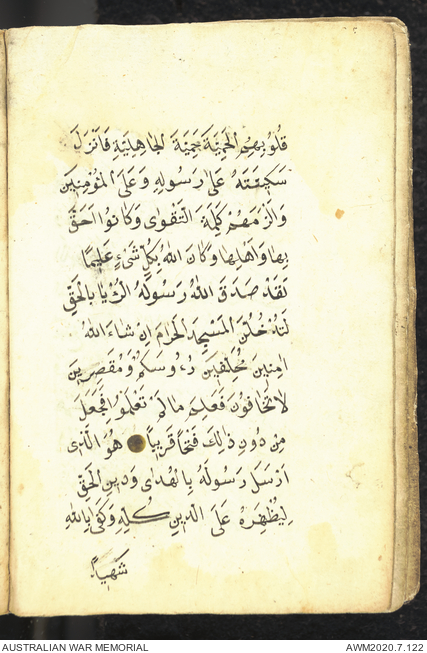 قُلُوبِهِمُ الْحَمِيَّةَ حَمِيَّةَ الْجَاهِلِيَّةِ فَاَنْزَلَ
سَكِينَتَهُ عَلٰى رَسُولِهِ وَعَلَى الْمُؤْمِنِينَ
وَاَلْزَمَهُمْ كَلِمَةَ التَّقْوٰى وَكَانُوا اَحَقَّ
بِهَا وَاَهْلَهَا وَكَانَ اللّٰهُ بِكُلِّ شَيْءٍ عَلِيمًا
لَقَدْ صَدَقَ اللّٰهُ رَسُولَهُ الرُّءْيَا بِالْحَقِّ
لَتَدْخُلُنَّ الْمَسْجِدَ الْحَرَامَ اِنْ شَاءَ اللّٰهُ
اٰمِنِينَ مُحَلِّقِينَ رُءُوسَكُمْ وَمُقَصِّرِينَ
لَا تَخَافُونَ فَعَلِمَ مَا لَمْ تَعْلَمُوا فَجَعَلَ
مِنْ دُونِ ذٰلِكَ فَتْحًا قَرِيبًا هُوَ الَّذِى
اَرْسَلَ رَسُولَهُ بِالْهُدٰى وَدِينِ الْحَقِّ
لِيُظْهِرَهُ عَلَى الدِّينِ كُلِّهِ وَكَفٰى بِاللّٰهِ
شَهِيدًا
AUSTRALIAN WAR MEMORIAL
AWM2020.7.122